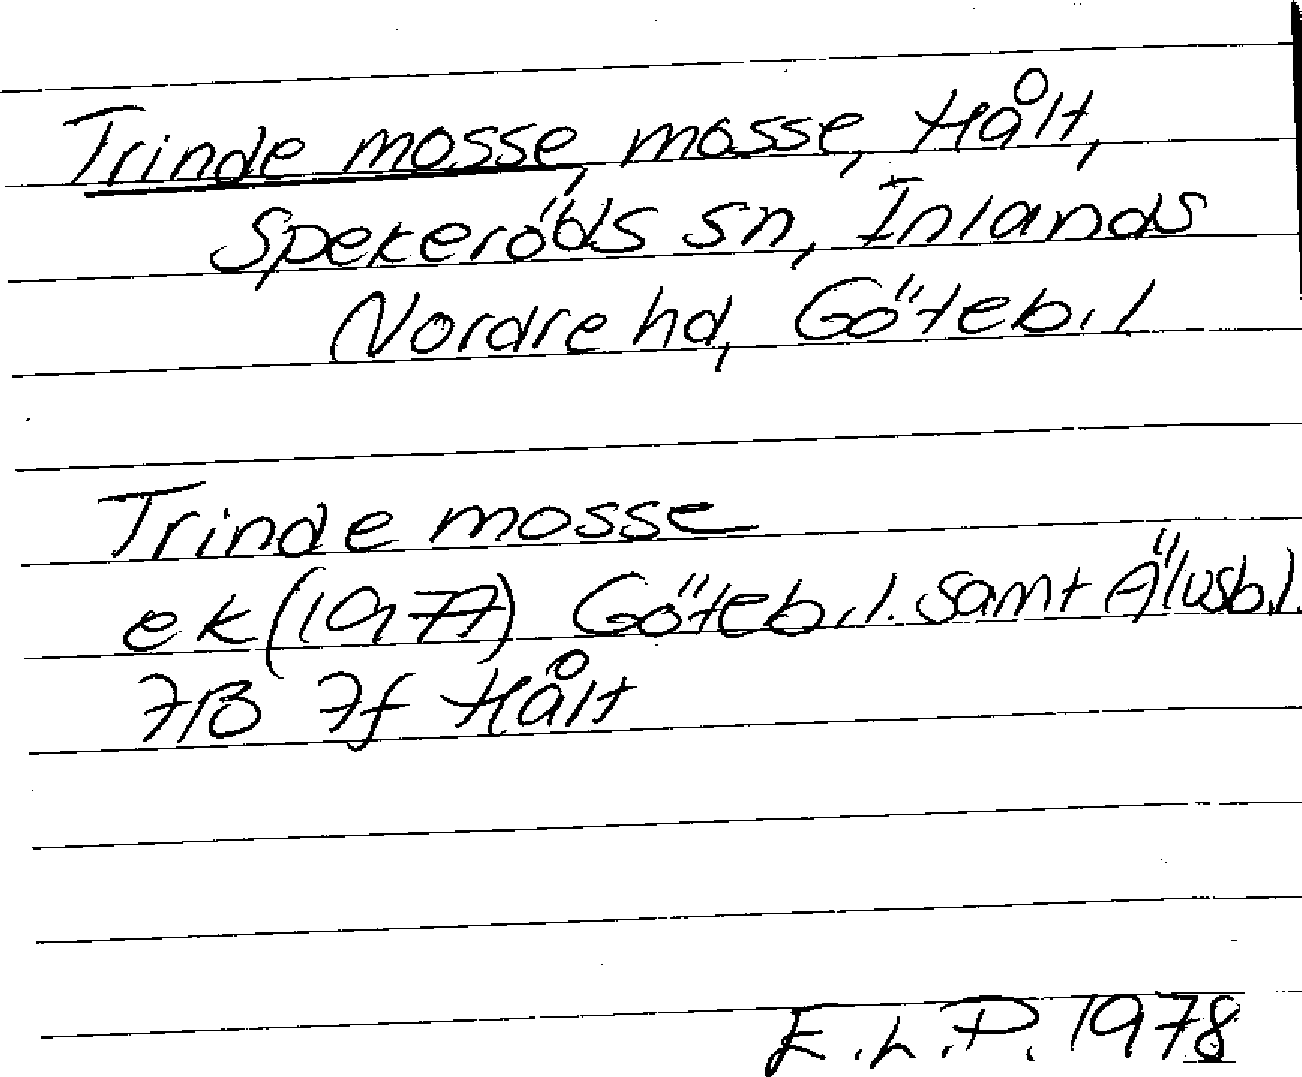 Trinde mosse, mosse, Hålt,
Spekeröds sn, Inlands
Nordre hd, Göteb.l
Trinde mosse
ek (1977) Göteb.l. samt Älvsb.l.
7B 7f Hålt
E.L.P. 1978